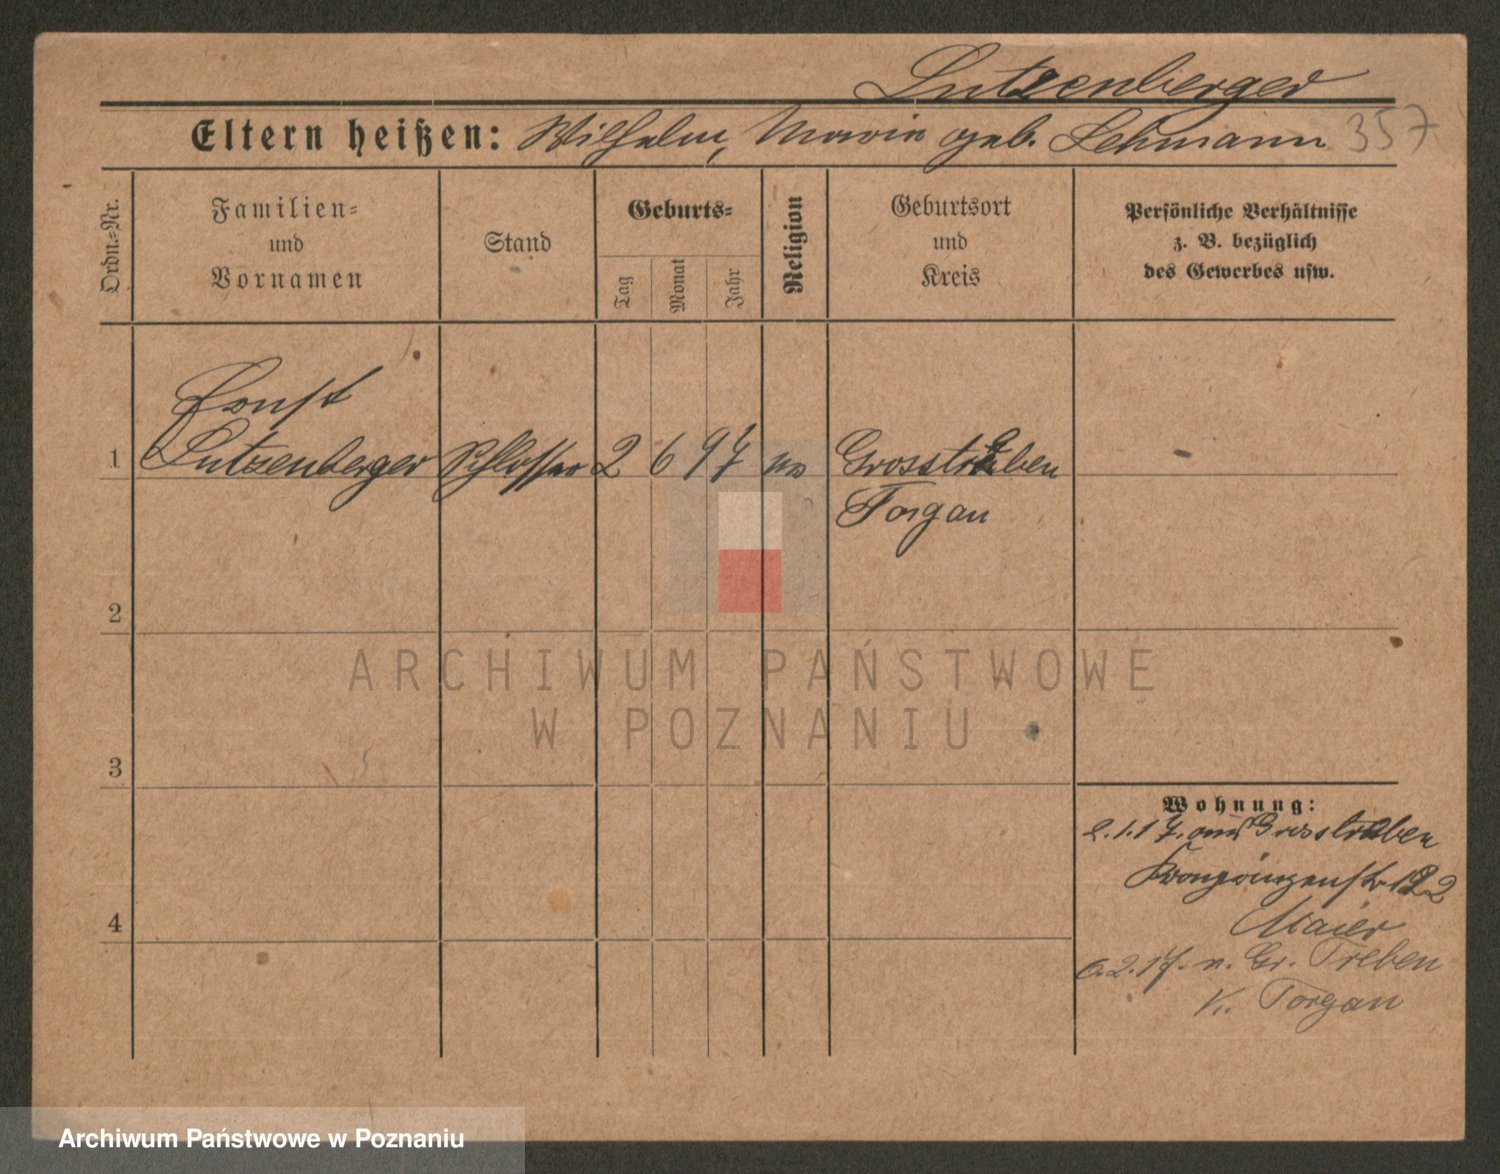 Lutzenberger
Eltern heißen: Wilhelm, Marie geb. Lehmann 357
Ordn.=Nr.
Familien=
und
Vornamen
Stand
Geburts=
Tag
Monat
Jahr
Religion
Geburtsort
und
Kreis
Persönliche Verhältnisse
z. B. bezüglich
des Gewerbes usw.
Ernst
1 Lutzenberger Schlosser 2 6 97 Grosstreben
Torgau
2
3
4
Wohnung:
2.1.17. aus Grosstreben
Kronprinzenstr 122
Maier
2.17. n. Gr. Treben
K. Torgau
ARCHIWUM PAŃSTWOWE
W POZNANIU
Archiwum Państwowe w Poznaniu